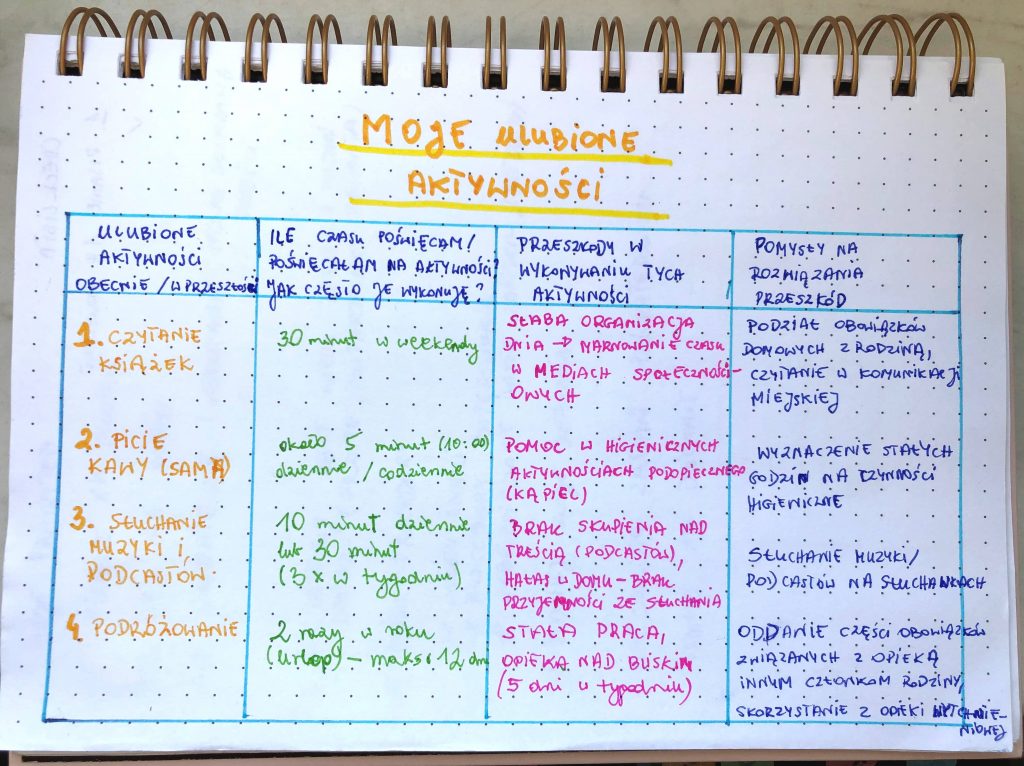 MOJE ULUBIONE
AKTYWNOŚCI
ULUBIONE
AKTYWNOŚCI
OBECNIE / W PRZESZŁOŚCI
ILE CZASU POŚWIĘCAM /
POŚWIĘCAŁAM NA AKTYWNOŚCI?
JAK CZĘSTO JE WYKONUJĘ?
PRZESZKODY W
WYKONYWANIU TYCH
AKTYWNOŚCI
POMYSŁY NA
ROZWIĄZANIA
PRZESZKÓD
1. CZYTANIE
KSIĄŻEK
30 minut w weekendy
SŁABA ORGANIZACJA
DNIA → MARNOWANIE CZASU
W MEDIACH SPOŁECZNOŚCI-
OWYCH
PODZIAŁ OBOWIĄZKÓW
DOMOWYCH Z RODZINĄ,
CZYTANIE W KOMUNIKACJI
MIEJSKIEJ
2. PICIE
KAWY (SAMA)
około 5 minut (10:00)
dziennie / codziennie
POMOC W HIGIENICZNYCH
AKTYWNOŚCIACH PODOPIECZNEGO
(KĄPIEL)
WYZNACZENIE STAŁYCH
GODZIN NA CZYNNOŚCI
HIGIENICZNE
3. SŁUCHANIE
MUZYKI I
PODCASTÓW
10 minut dziennie
lub 30 minut
(3 x w tygodniu)
BRAK SKUPIENIA NAD
TREŚCIĄ (PODCASTÓW),
HAŁAS W DOMU – BRAK
PRZYJEMNOŚCI ZE SŁUCHANIA
SŁUCHANIE MUZYKI /
PODCASTÓW NA SŁUCHAWKACH
4. PODRÓŻOWANIE
2 razy w roku
(urlop) – maks. 12 dni
STAŁA PRACA,
OPIEKA NAD BLISKIM
(5 dni w tygodniu)
ODDANIE CZĘŚCI OBOWIĄZKÓW
ZWIĄZANYCH Z OPIEKĄ
INNYM CZŁONKOM RODZINY,
SKORZYSTANIE Z OPIEKI WYTCHNIE-
NIOWEJ